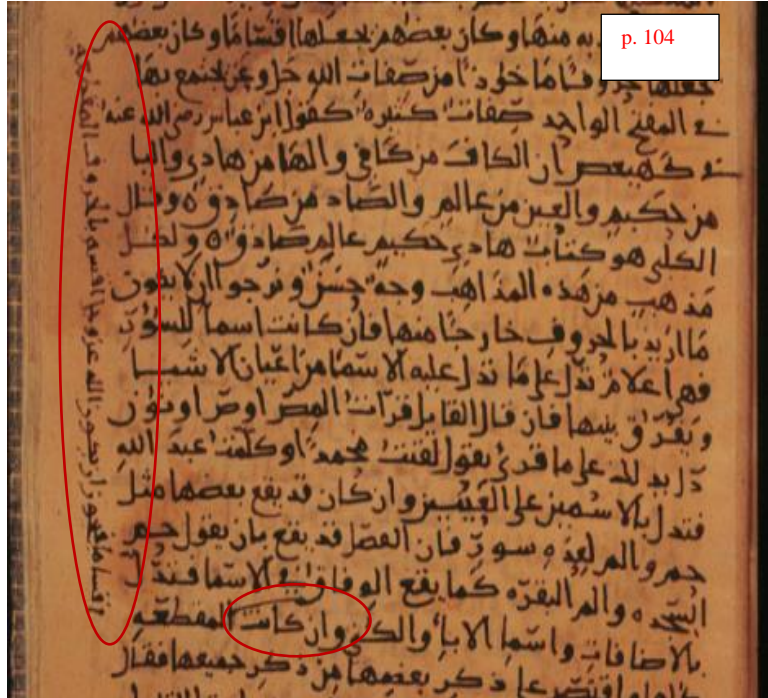 p. 104
به منها وكان بعضهم يجعلها اقساما وكان بعضهم
يجعلها حروفا ماخوذة من صفات الله جل وعز يجتمع بها
في المفتتح الواحد صفات كثيره كقول ابن عباس رضي الله عنه
في كهيعص ان الكاف من كافي والها من هادي واليا
من حكيم والعين من عالم والصاد من صادق ه وقال
الكلبي هو كتاب هادي حكيم عالم صادق ه ولكل
مذهب من هذه المذاهب وجه حسن ونرجوا ان لا يكون
ما اريد بالحروف خارجا منها فان كانت اسما للسور
فهي اعلام تدل على ما تدل عليه الاسما من اعيان الاشيا
وتفرق بينها فان قال القايل قرات المص او ص او نون
دل بذلك على ما قرئ يقول لقيت محمدا وكلمت عبد الله
فتدل بالاسمين على العينين وان كان قد يقع بعضها مثل
حم والم لعده سور فان الفصل قد يقع بان يقول حم
السجده والم البقره كما يقع الوفاق في الاسما فتدل
بالاضافات واسما الابا والكنى وان كانت المقطعه
واقتصر على ذكر بعضها من ذكر جميعها فقال
اقساما فيجوز ان يكون الله عز وجل اقسم بالحروف المقطعه